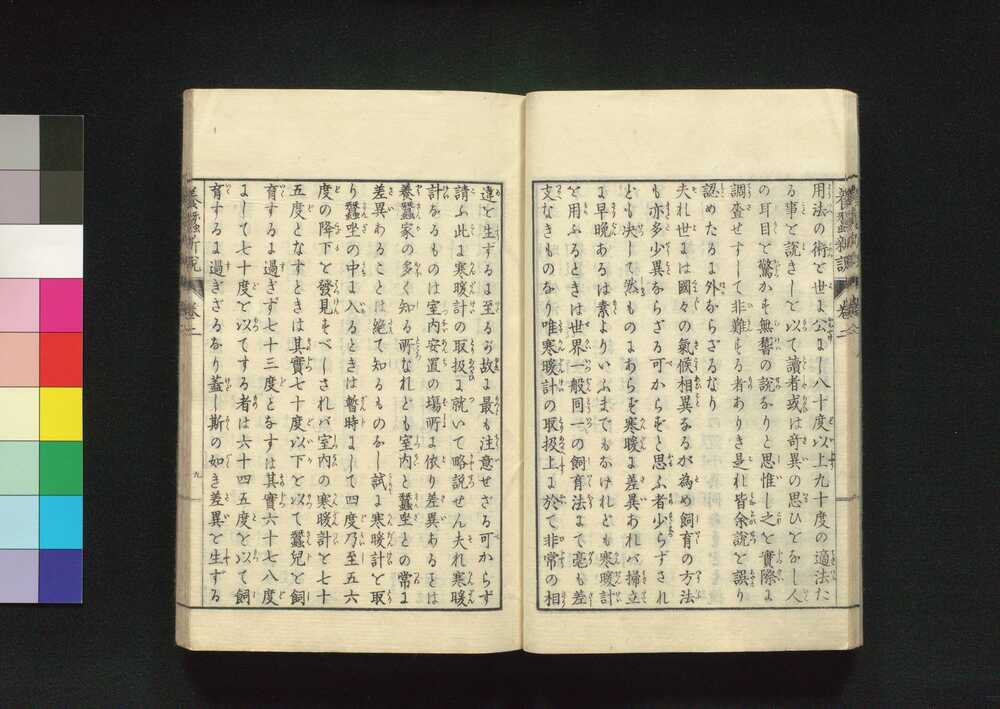 用法の術を世に公にし八十度以上九十度の適法た
る事を説きしを以て讀者或は奇異の思ひをなし人
の耳目を驚かす無稽の說なりと思惟し之を實際に
調査せずして非難する者ありき是れ皆余が說を誤り
認めたるに外ならざるなり
夫れ世には國々の氣候相異なるが爲め飼育の方法
も亦多少異ならざる可からずと思ふ者少らずされ
ども决して然るものにあらず寒暖に差異あれバ掃立
に早晩あるは素よりいふまでもなけれども寒暖計
を用ふるときは世界一般同一の飼育法にて毫も差
支なきものなり唯寒暖計の取扱上に於て非常の相
違を生ずるに至るなり故に最も注意せざる可からず
請ふ此に寒暖計の取扱に就いて略說せん夫れ寒暖
計なるものは室内安置の塲所に依り差異あるをば
養蠶家の多く知る所なれども室内と蠶坐との常に
差異あることは絕て知るものなし試に寒暖計を取
り蠶坐の中に入るときは暫時にして四度乃至五六
度の降下を發見すべしされバ室内の寒暖計を七十
五度となすときは其實七十度以下を以て蠶兒を飼
育するに過ぎず七十三度となすは其實六十七八度
にして七十度を以てする者は六十四五度を以て飼
育するに過ぎざるなり蓋し斯の如き差異を生ずる
養蠶新說
卷二
九